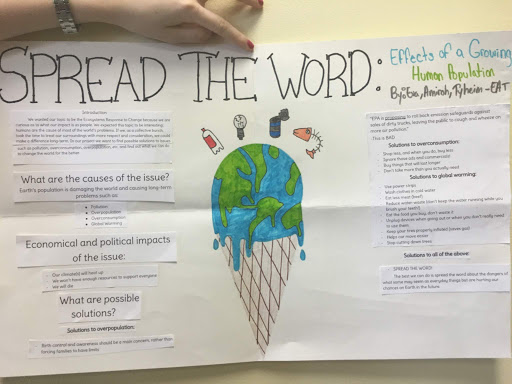 SPREAD THE WORD:
Effects of a Growing
Human Population
Introduction:
We wanted our topic to be the Ecosystems Response to Change because we are
humans are the cause of most of the world's problems. If we, as a collective bunch,
took the time to treat our surroundings with more respect and consideration, we could
make a difference long term. In our project we want to find possible solutions to issues
such as pollution, overconsumption,
to change the world for the better.
What are the causes of the issue?
Earth's population is damaging the world and causing long-term
problems such as:
Pollution
Overpopulation
Overconsumption
Global Warming
Economical and political impacts
of the issue:
Our climate(s) will heat up
We won't have enough resources to support everyone
We will die
What are possible
solutions?
Solutions to overpopulation:
Birth control and awareness should be a main concern, rather than
forcing families to have limits
"EPA is proposing to roll back emission safeguards against
sales of dirty trucks, leaving the public to cough and wheeze on
more air pollution".
-This is BAD
Solutions to overconsumption:
Shop less, and when you do, buy less
Ignore those ads and commercials!
Buy things that will last longer
Don't take more than you actually need
Solutions to global warming:
Use power strips
Wash clothes in cold water
Eat less meat (beef)
Reduce water waste (don't keep the water running while you
brush your teeth!)
Eat the food you buy, don't waste it
Unplug devices when going out or when you don't really need
to use them
Keep your tires properly inflated (saves gas)
Stop cutting down trees
Solutions to all of the above:
SPREAD THE WORD!
The best we can do is spread the word about the dangers of
what some may seem as everyday things but are hurting our
chances on Earth in the future.